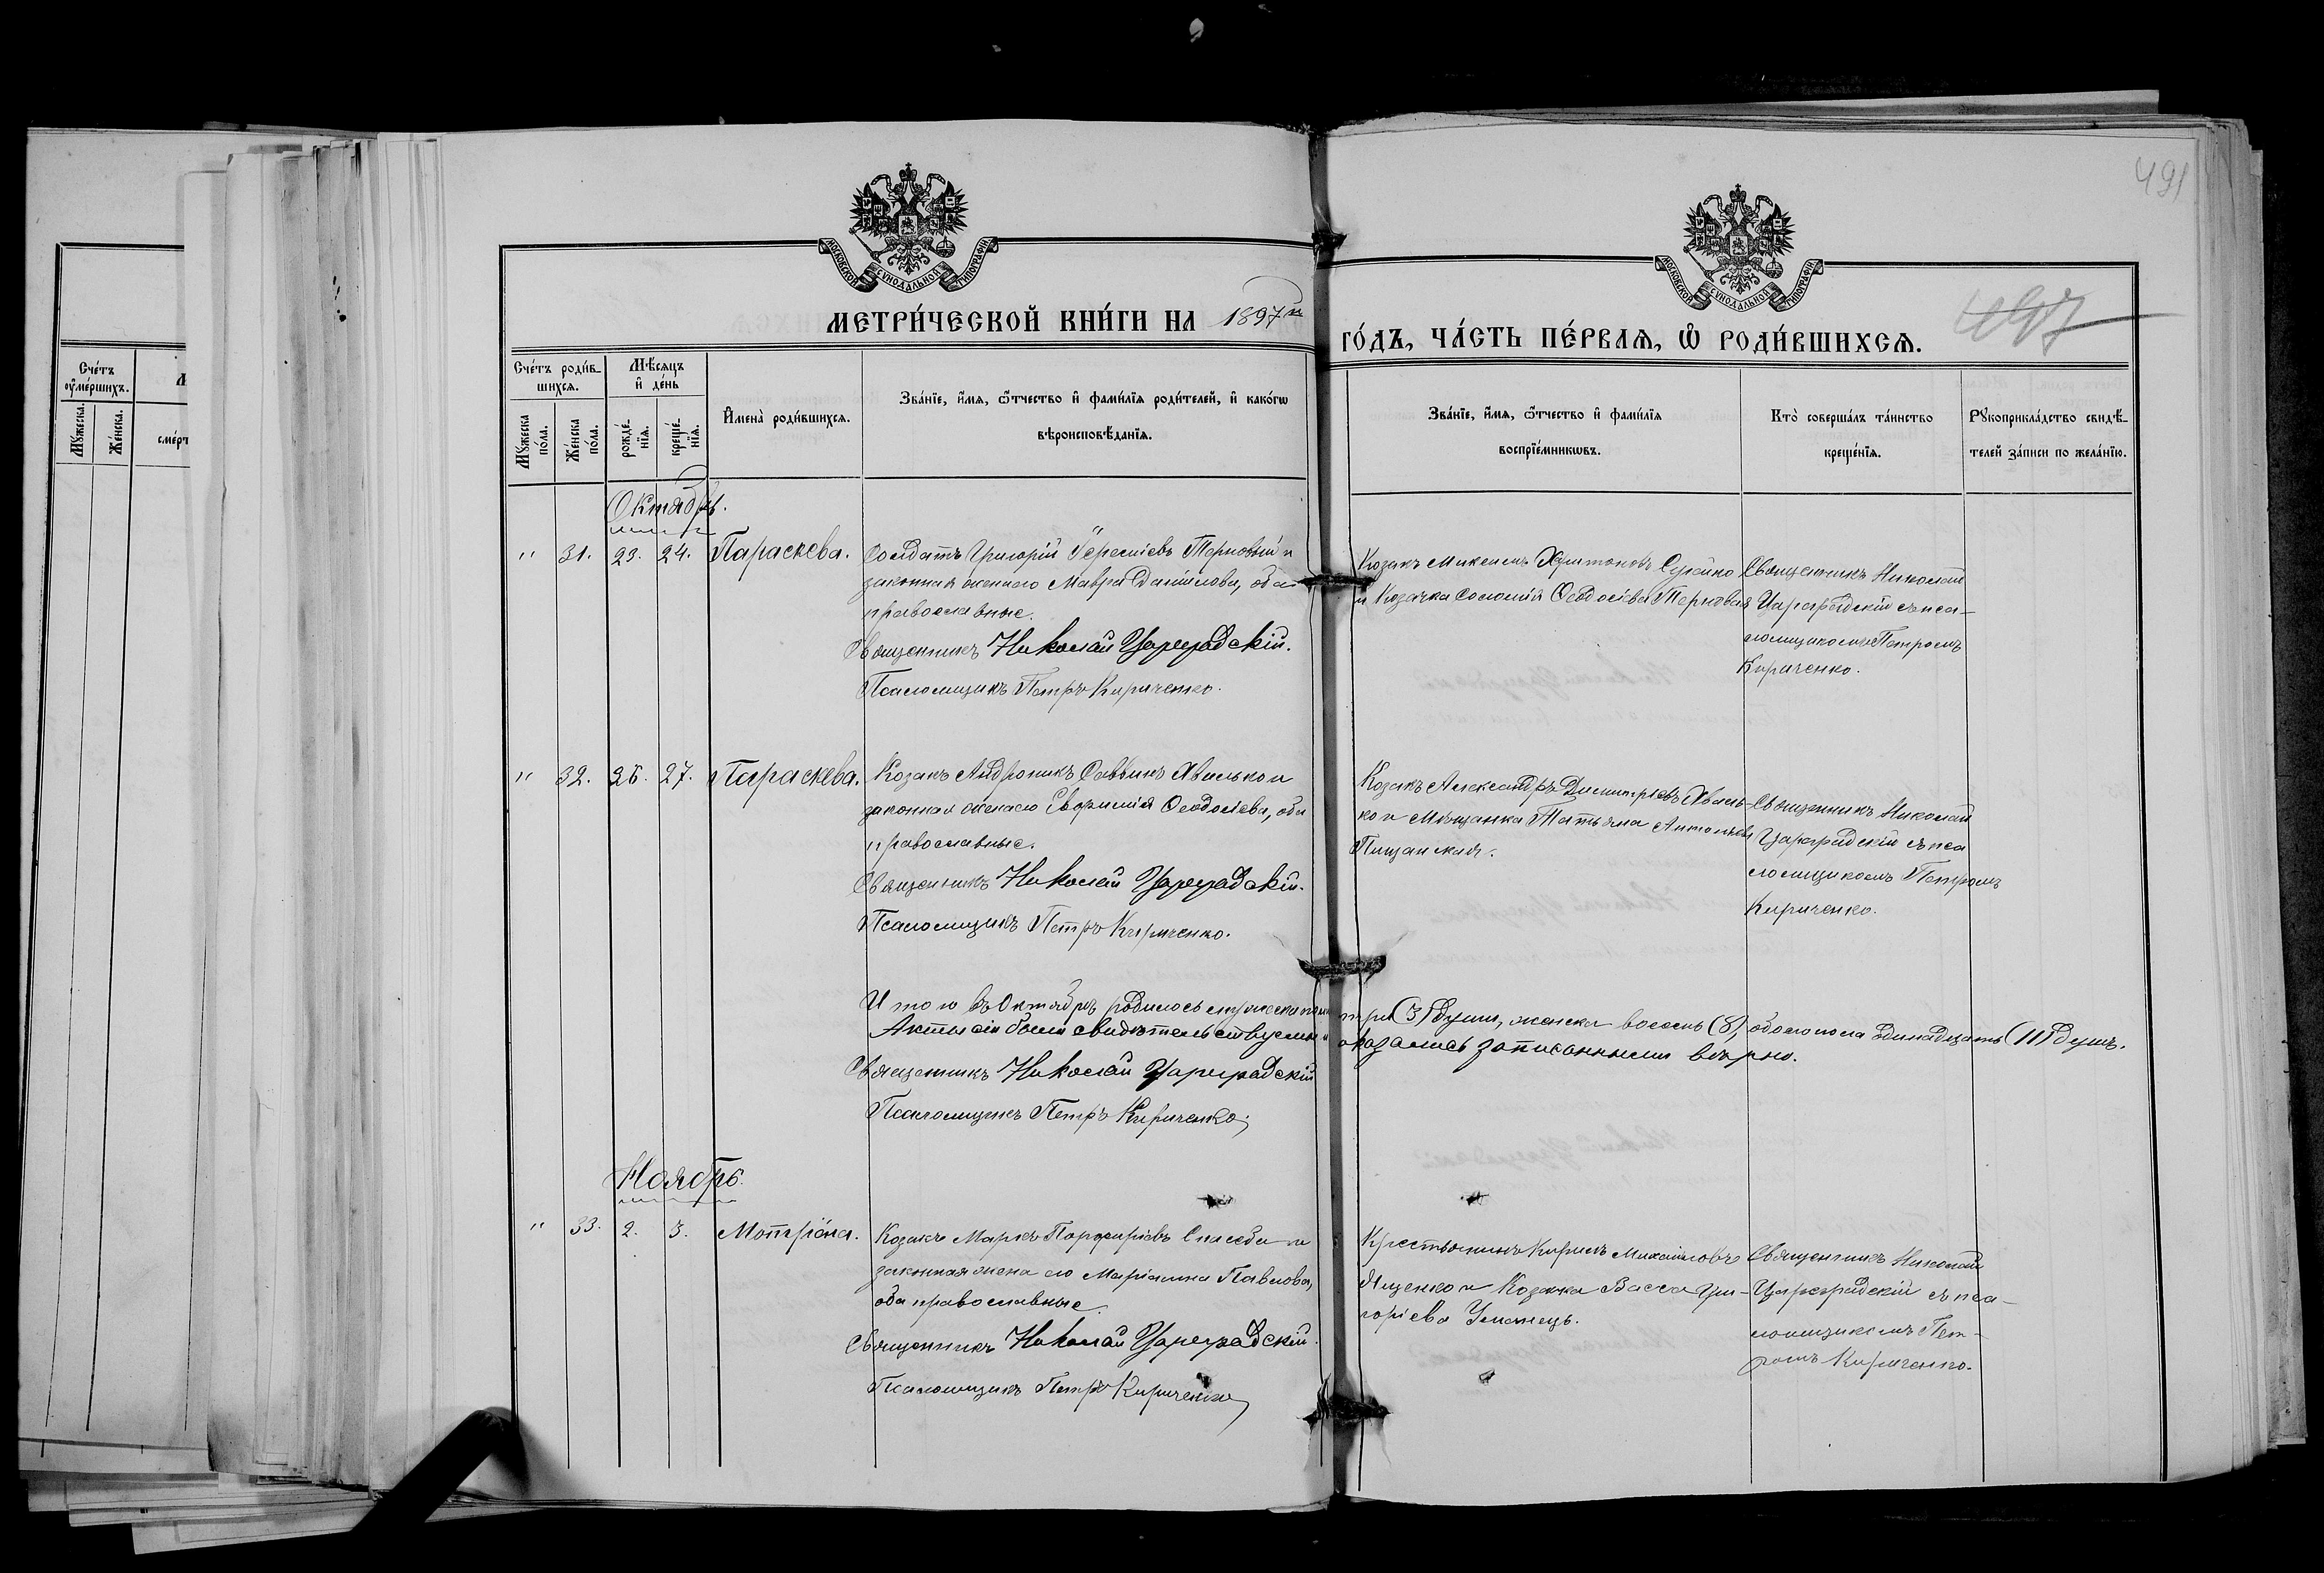 491
МОСКОВСКОЙ СѴНОДАЛЬНОЙ ТИПОГРАФІИ
МОСКОВСКОЙ СѴНОДАЛЬНОЙ ТИПОГРАФІИ
МЕТРИ́ЧЕСКОЙ КНИ́ГИ НА 1897й
ГО́ДЪ, ЧА́СТЬ ПЕ́РВАѦ, Ѽ РОДИ́ВШИХСѦ.
Сче́тъ ᲂу҆ме́ршихъ.
Мꙋ́жеска.
Же́нска.
Сче́тъ роди́в-
шихсѧ.
Мꙋ́жеска по́ла.
Же́нска по́ла.
Мѣ́сѧцъ и҆ де́нь
рожде́нїѧ.
креще́нїѧ.
И҆мена̀ роди́вшихсѧ.
Зва́нїе, и҆́мѧ, ѿтчество и҆ фами́лїѧ роди́телей, и҆ како́гѡ
вѣроисповѣ́данїѧ.
Зва́нїе, и҆́мѧ, ѿтчество и҆ фами́лїѧ
воспрїе́мникѡвъ.
Кто̀ соверша́лъ та́инство
креще́нїѧ.
Рꙋкоприкла́дство свидѣ́-
телей за́писи по жела́нїю.
Октябрь.
" 31. 23. 24. Параскева. Солдатъ Григорій Терновый и
законная жена его Мавра Данiилова, оба
православные.
Священникъ Николай Цареградскій.
Псаломщикъ Петръ Кириченко.
Козакъ Максимъ Харитоновъ
и Козачка Соломія Ѳеодосіева Терновая
Священникъ Николай
Цареградскій съ пса-
ломщикомъ Петромъ
Кириченко.
" 32. 26. 27. Параскева. Козакъ Андроникъ Саввинъ Явилько и
законная жена его Евфимія Ѳеодосіева, оба
православные.
Священникъ Николай Цареградскій.
Псаломщикъ Петръ Кириченко.
Козакъ Александръ Димитріевъ Явиль-
ко и Мѣщанка Татьяна Антоніева
Пищанская.
Священникъ Николай
Цареградскій съ пса
ломщикомъ Петромъ
Кириченко.
Итого въ Октябрѣ родилось мужеска пола три (3) души, женска восемь (8), обоего пола одинадцать (11) душъ.
Акты сіи были свидѣтельствуемы и оказались записанными вѣрно.
Священникъ Николай Цареградскій
Псаломщикъ Петръ Кириченко
Ноябрь.
" 33. 2. 3. Матрона. Козакъ Маркъ Порфиріевъ и
законная жена его Маріамна Павлова,
оба православные.
Священникъ Николай Цареградскій.
Псаломщикъ Петръ Кириченко
Крестьянинъ Кириллъ Михайловъ
Яценко и Козачка Васса Гри-
горіева Уманецъ.
Священникъ Николай
Цареградскій съ пса-
ломщикомъ Пет-
ромъ Кириченко.